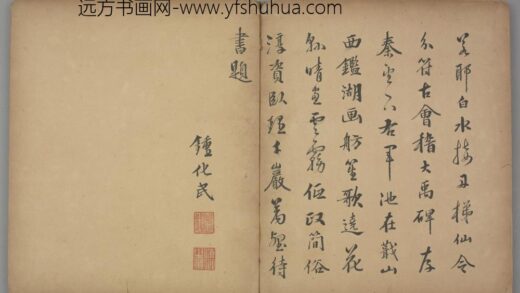 远方书画网-www.yfshuhua.com
若耶白水接丹梯仙令
分符古會稽大禹碑存
秦望下右軍池在蕺山
西鑑湖画舫笙歌遠花
縣晴雲霧低政簡俗
淳資臥理千巖萬壑待
書題
鍾化民